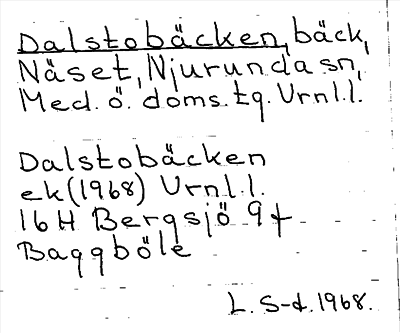 Dalstobäcken, bäck,
Näset, Njurunda sn,
Med. ö. doms. tg. Vrnl.l.
Dalstobäcken
ek (1968) Vrnl.l.
16 H Bergsjö 9f
Baggböle
L. S-d. 1968.